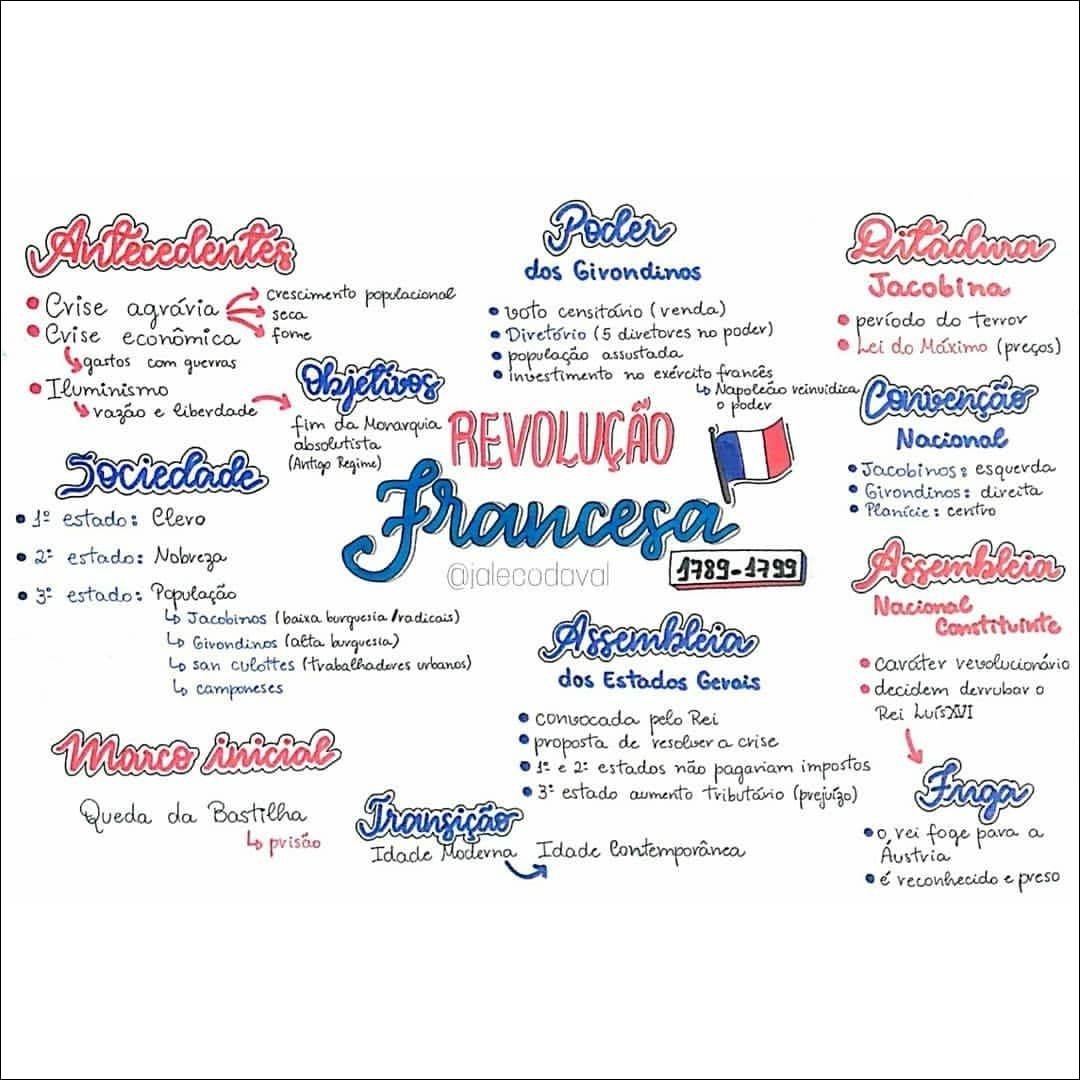 REVOLUÇÃO
Francesa
1789-1799
@jalecodaval
Antecedentes
Crise agrária
crescimento populacional
seca
fome
Crise econômica
gastos com guerras
Iluminismo
razão e liberdade
Objetivos
fim da Monarquia
absolutista
(Antigo Regime)
Sociedade
1º estado: Clero
2º estado: Nobreza
3º estado: População
Jacobinos (baixa burguesia/radicais)
Girondinos (alta burguesia)
san culottes (trabalhadores urbanos)
camponeses
Marco inicial
Queda da Bastilha
prisão
Transição
Idade Moderna Idade Contemporânea
Poder
dos Girondinos
voto censitário (venda)
Diretório (5 diretores no poder)
população assustada
investimento no exército francês
Napoleão reinvidica
o poder
Assembleia
dos Estados Gerais
convocada pelo Rei
proposta de resolver a crise
1º e 2º estados não pagariam impostos
3º estado aumento tributário (prejuízo)
Ditadura
Jacobina
período do terror
Lei do Máximo (preços)
Convenção
Nacional
Jacobinos: esquerda
Girondinos: direita
Planície: centro
Assembleia
Nacional
Constituinte
caráter revolucionário
decidem derrubar o
Rei Luís XVI
Fuga
o rei foge para a
Áustria
é reconhecido e preso